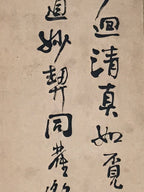 迴清真如覓
道妙契同塵